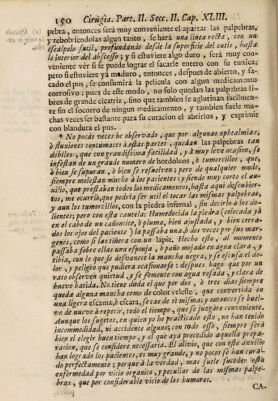 150 Cirugia. Part. II. Secc. II. Cap. XLIII.
pebra, entonces será muy conveniente el apartar las palpebras,
y rebolviendolas algun tanto, se hará una linea recta, con un
escalpelo sutil, profundando desde la superficie del cutis, hasta
lo interior del abscesso, y si estuviere algo duro, será muy con-
veniente ver si se puede lograr el sacarle entero con su tunica;
pero si estuviere yà maduro, entonces, despues de abierto, y sa-
cado el pus, se consumirá la pelicula con algun medicamento
corrosivo; pues de este modo, no solo quedan las palpebras li-
bres de grande cicatriz, sino que tambien se aglutinan facilmen-
te sin el socorro de ningun medicamento, y tambien suele mu-
chas veces ser bastante para su curacion el abrirlos, y exprimir
con blandura el pus.
* No pocas veces he observado, que por algunas ophtalmias,
ò fluxiones contumaces à estas partes, quedan las palpebras tan
debiles, que con grandissima facilidad, y à muy leve ocasion, se
infestan de un grande numero de hordoleos, ò tumorcillos, que,
ò bien se supuran, ò bien se resuelven; pero de qualquier modo,
siempre molestan mucho à los pacientes; y siendo muy corto el au-
xilio, que prestaban todos los medicamentos, hasta aqui descubier-
tos, me ocurriò, que podria ser util el tocar las mismas palpebras,
y aun los tumorcillos, con la piedra infernal, sin decirlo à los do-
lientes; pero con esta cautela: Humedecida la piedra (colocada yà
en el cabo de un cañoncito, ò pluma, bien ajustada, y bien cerra-
dos los ojos del paciente) la passaba una, ò dos veces por sus mar-
genes, como si las tiñera con un lapiz. Hecho esto, al momento
passaba sobre ellas una esponja, ò paño mojado en agua clara, y
tibia, con lo que se desvanece la mancha negra, y se escusa el do-
lor, y peligro que pudiera ocasionarse: despues hago que por un
rato observen quietud, y se fomenten con agua rosada, y clara de
huevo batida. No tiene duda el que por dos, ò tres dias siempre
queda alguna mancha como de color celeste, que convertida en
una ligera escama, ò escara, se cae de sí misma; y entonces se buel-
ve de nuevo à repetir, todo el tiempo, que se juzgare conveniente.
Aunque los sugetos, en quien yo he practicado esto, no han tenido
incommodidad, ni accidente alguno; con todo esso, siempre será
bien el elegir buen tiempo, y el que aya precedido aquella prepa-
racion, que se considere necessaria. El alivio, que con este auxilio
han logrado los pacientes, es muy grande, y no pocos se han cura-
do perfectamente; porque à la verdad, mas suele suceder esta
enfermedad por vicio organico, y peculiar de las mismas palpe-
bras, que por considerable vicio de los humores.
CA-